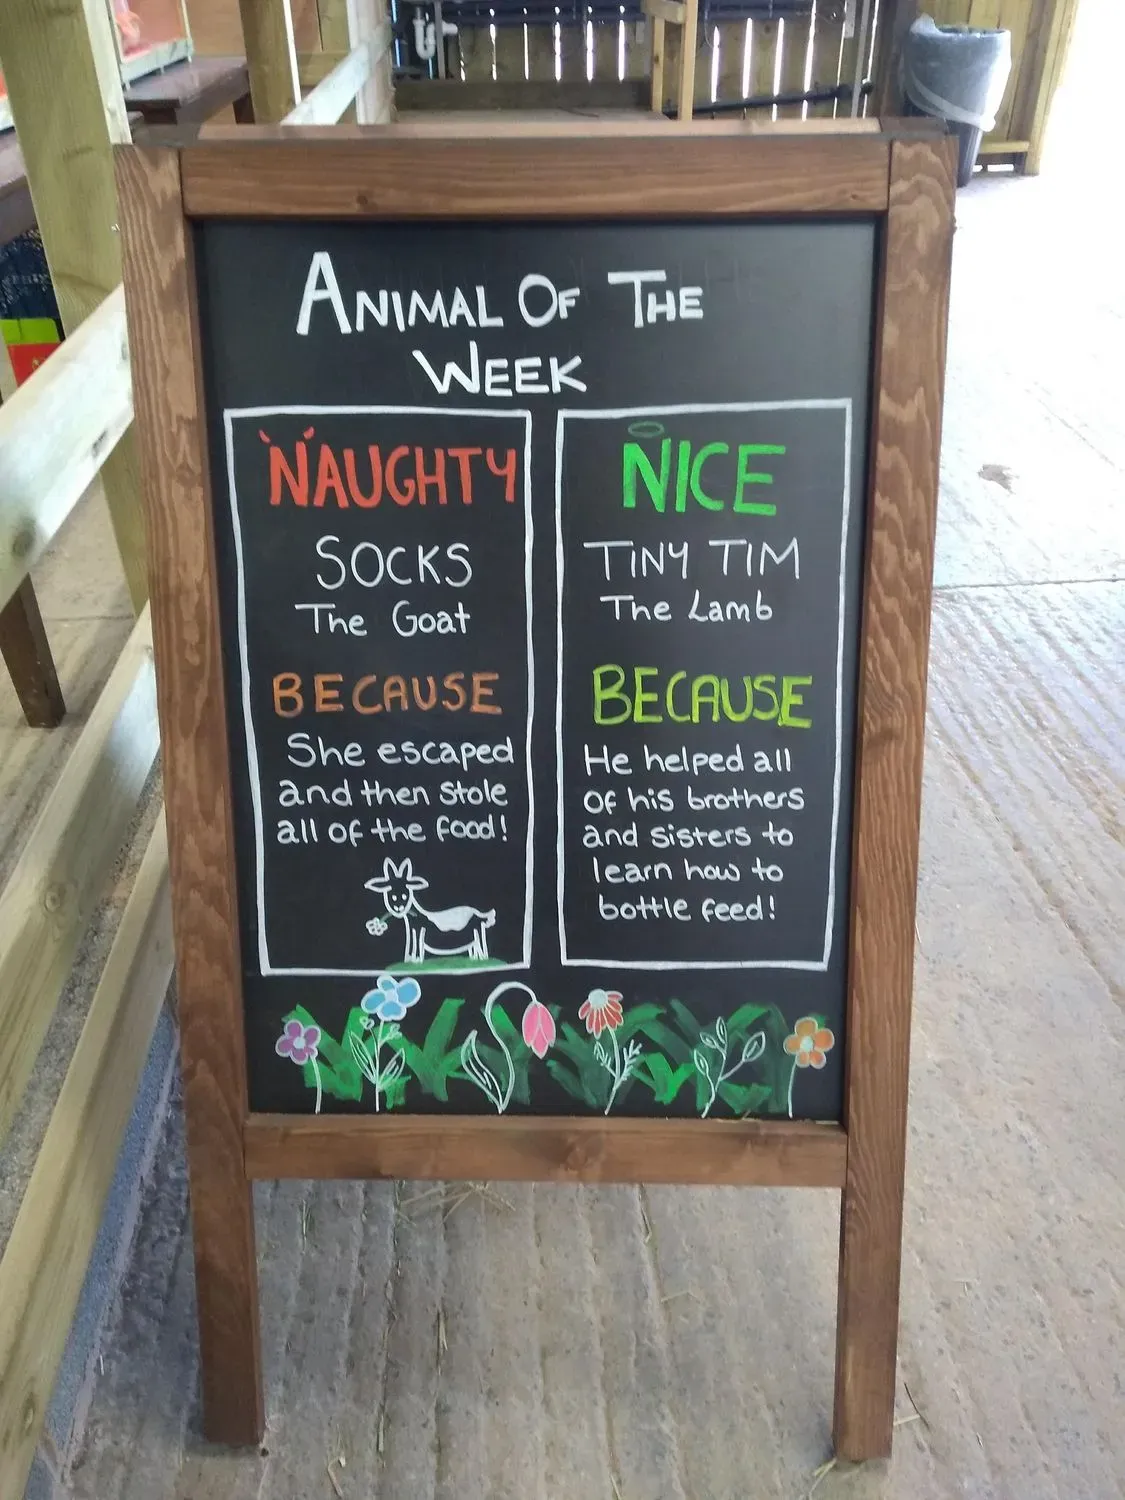 Animal Of The
Week
NAUGHTY
SOCKS
The Goat
BECAUSE
She escaped
and then stole
all of the food!
NICE
TiNY TIM
The Lamb
BECAUSE
He helped all
Of his brothers
and sisters to
learn how to
bottle feed!